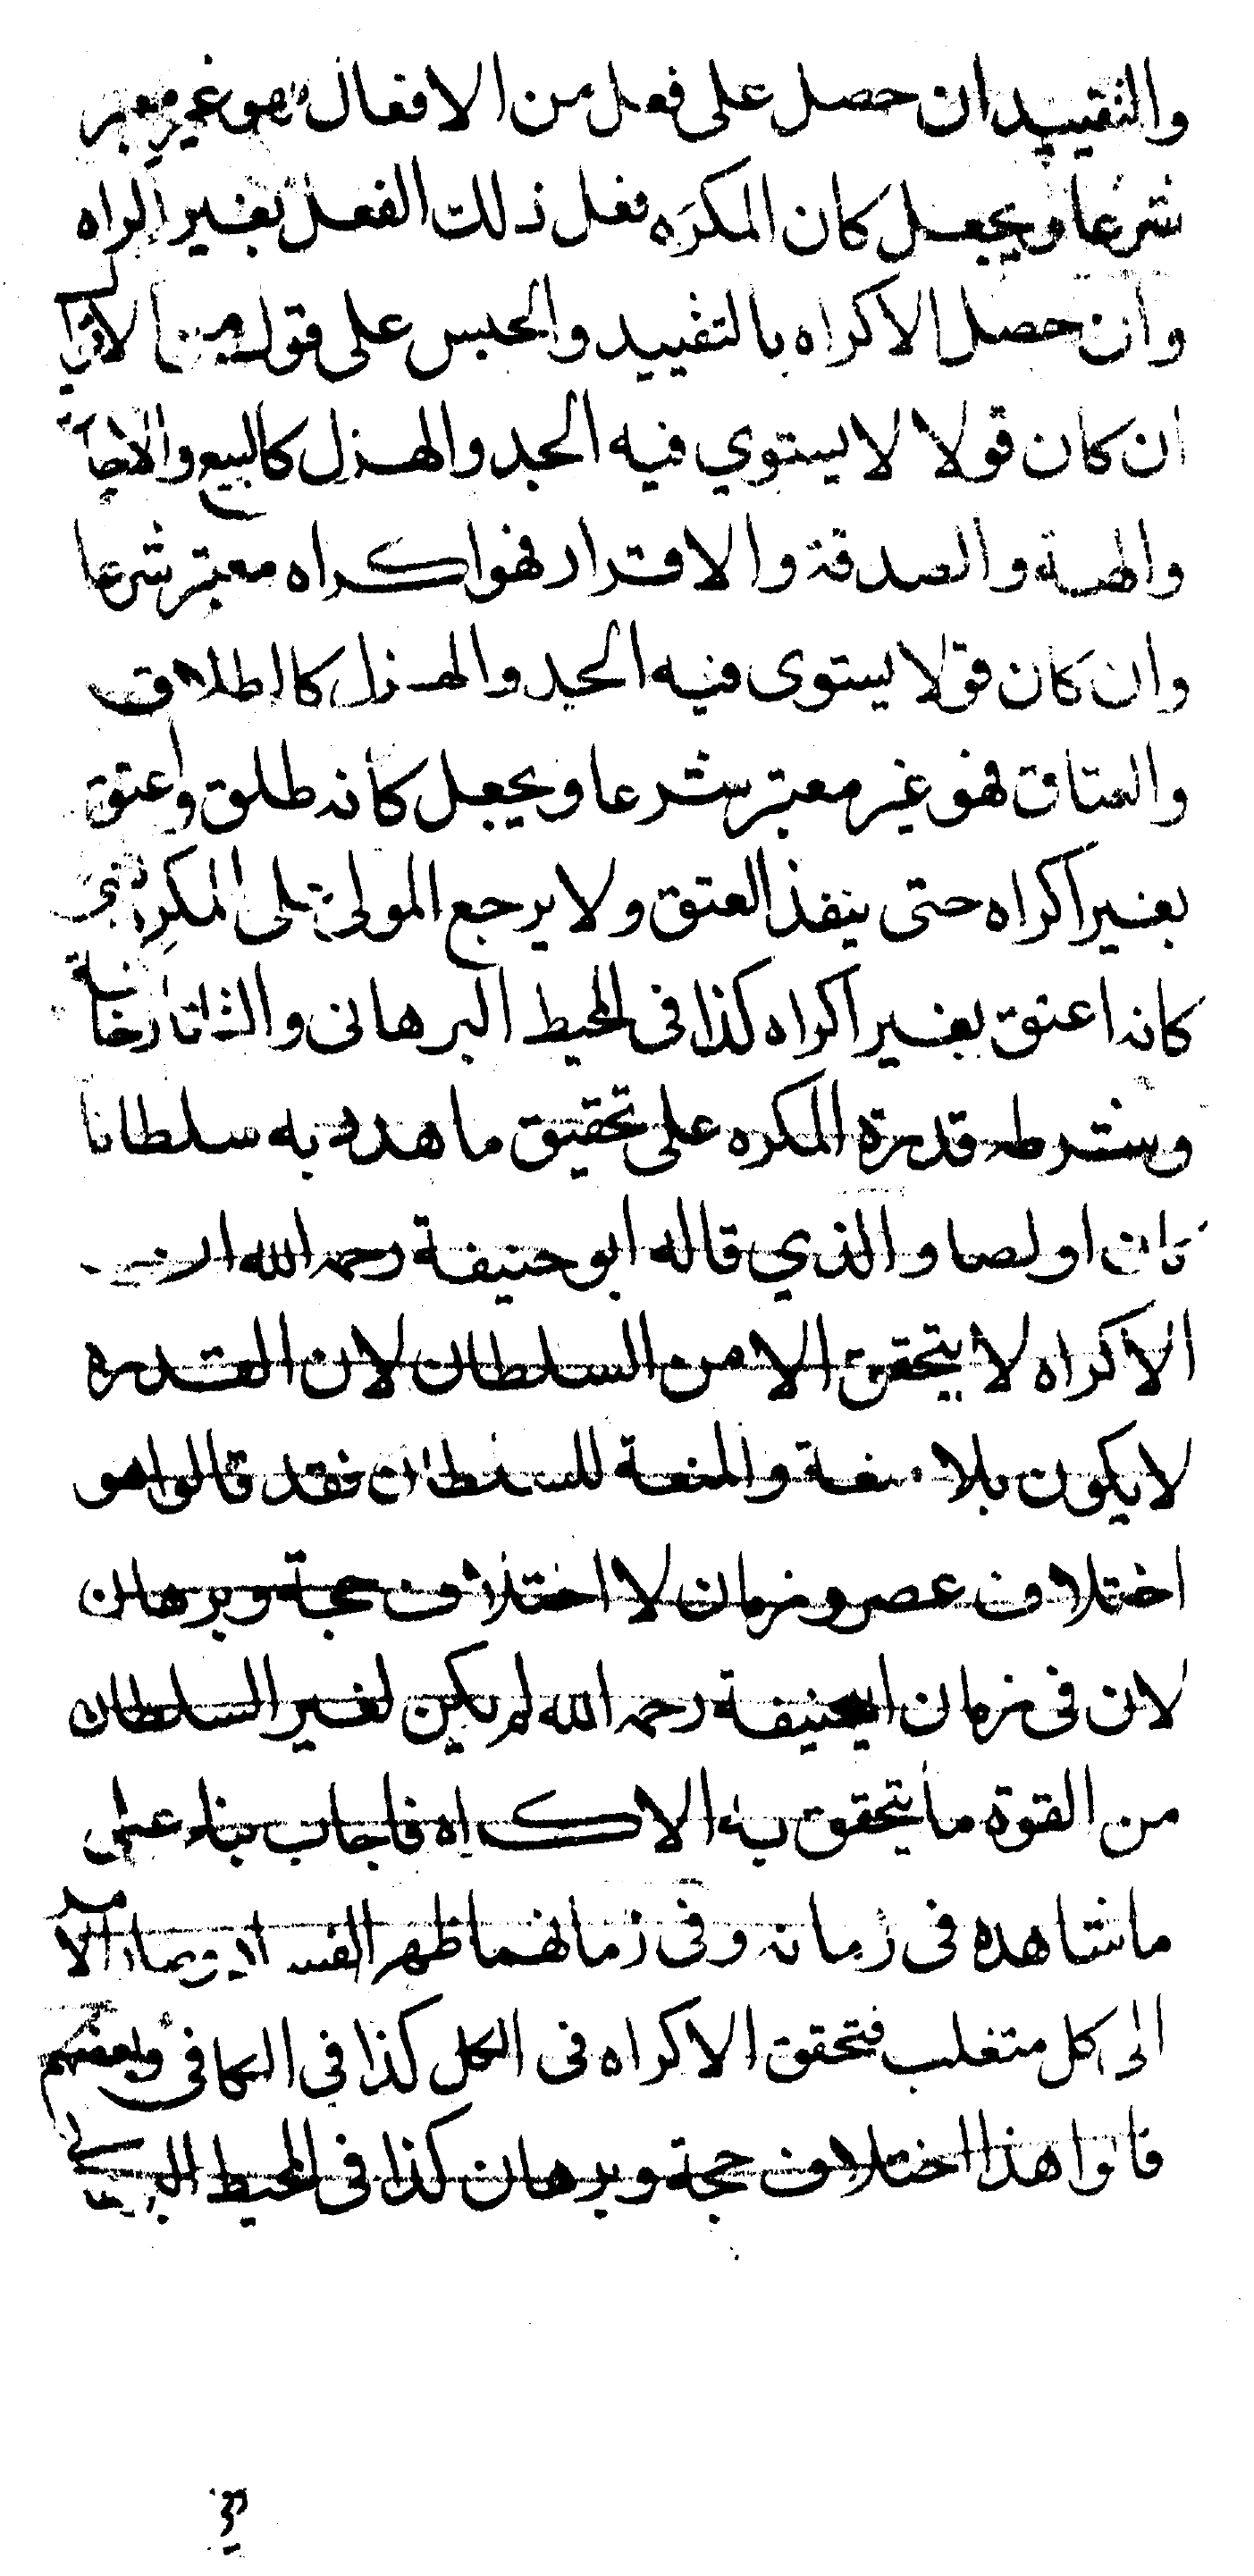 والتقييد ان حصل على فعل من الافعال فهو غير معتبر
شرعا ويجعل كان المكرَه فعل ذلك الفعل بغير اكراه
وان حصل الاكراه بالتقييد والحبس على قول من الاقوال
ان كان قولا لا يستوي فيه الجد والهزل كالبيع والاجارة
والهبة والصدقة والاقرار فهو اكراه معتبر شرعا
وان كان قولا يستوى فيه الجد والهزل كالطلاق
والعتاق فهو غير معتبر شرعا ويجعل كانه طلق واعتق
بغير اكراه حتى ينفذ العتق ولا يرجع المولى على المكرِه
كانه اعتق بغير اكراه كذا فى المحيط البرهانى والتاتارخانية
وشرطه قدرة المكره على تحقيق ما هدد به سلطانا
كان او لصا والذي قاله ابو حنيفة رحمه الله ان
الاكراه لا يتحقق الا من السلطان لان القدرة
لا يكون بلا منعة والمنعة للسلطان فقد قالوا هو
اختلاف عصر وزمان لا اختلاف حجة وبرهان
لان فى زمان ابيحنيفة رحمه الله لم يكن لغير السلطان
من القوة ما يتحقق به الاكراه فاجاب بناء على
ما شاهده فى زمانه وفى زمانهما ظهر الفساد وصار الامر
الى كل متغلب فتحقق الاكراه فى الكل كذا فى الكافى وبعضهم
قالوا هذا اختلاف حجة وبرهان كذا فى المحيط